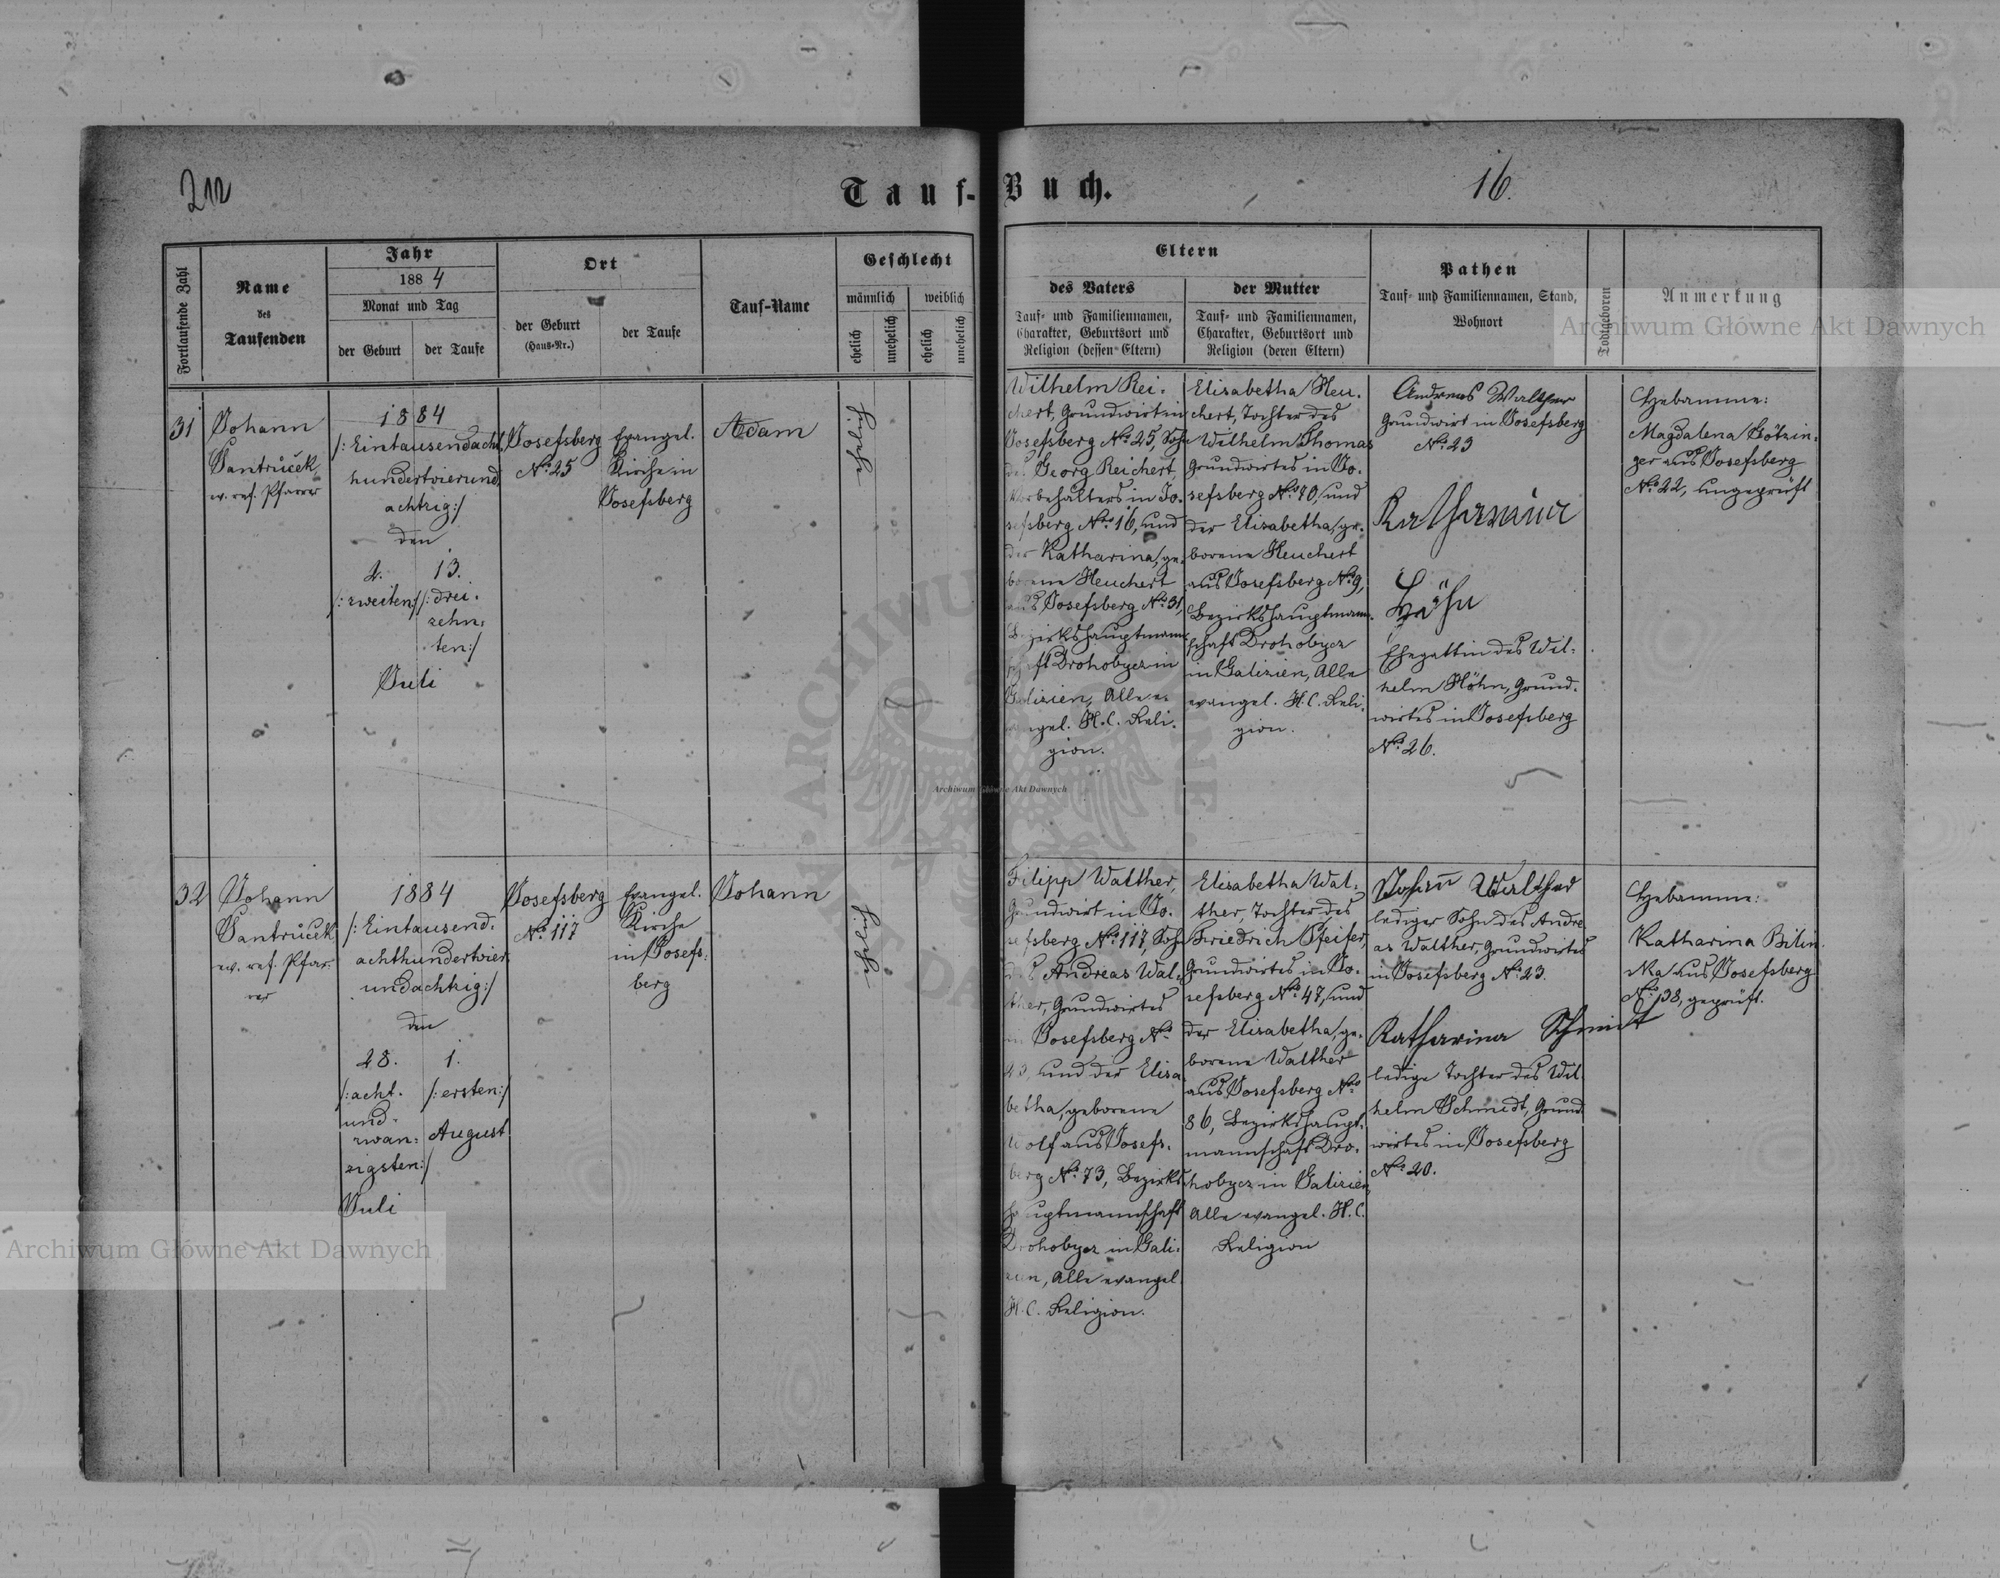 212
Tauf-Buch.
16.
Fortlaufende Zahl
Name
des
Taufenden
Jahr
1884
Monat und Tag
der Geburt
der Taufe
Ort
der Geburt
(Haus-Nr.)
der Taufe
Tauf-Name
Geschlecht
männlich
weiblich
ehelich
unehelich
ehelich
unehelich
Eltern
des Vaters
Tauf- und Familiennamen,
Charakter, Geburtsort und
Religion (dessen Eltern)
der Mutter
Tauf- und Familiennamen,
Charakter, Geburtsort und
Religion (deren Eltern)
Pathen
Tauf- und Familiennamen, Stand,
Wohnort
Todtgeboren
Anmerkung
31
Johann
Santrůček
ev. ref. Pfarrer
1884
/: Eintausendacht,
hundertvierund,
achtzig:/
den
2.
/: zweiten:/
13.
/: drei-
zehn:
ten:/
Juli
Josefsberg
No. 25
Evangel.
Kirche in
Josefsberg
Adam
ehelich
Wilhelm Rei-
chert, Grundwirt in
Josefsberg No. 25, Sohn
des Georg Reichert
Vorbehälters in Jo-
sefsberg No. 16, und
der Katharina, ge-
borene Heuchert
aus Josefsberg No. 31,
Bezirkshauptmann-
schaft Drohobycz in
Galizien, Alle e-
vangel. H. C. Reli-
gion.
Elisabetha Heu-
chert, Tochter des
Wilhelm Thomas
Grundwirtes in Jo-
sefsberg No. 70, und
der Elisabetha, ge-
borene Heuchert
aus Josefsberg No. 9,
Bezirkshauptmann-
schaft Drohobycz
in Galizien, Alle
evangel. H. C. Reli-
gion.
Andreas Walther
Grundwirt in Josefsberg
No. 23
Katharina
Höhn
Ehegattin des Wil-
helm Höhn, Grund-
wirtes in Josefsberg
No. 26.
Hebamme:
Magdalena Götzin-
ger aus Josefsberg
No. 22, ungeprüft
32
Johann
Santrůček
ev. ref. Pfar-
rer
1884
/: Eintausend-
achthundertvier
undachtzig:/
den
28.
/: acht-
und-
zwan-
zigsten:/
Juli
1.
/: ersten:/
August
Josefsberg
No. 117
Evangel.
Kirche
in Josefs-
berg
Johann
ehelich
Filipp Walther,
Grundwirt in Jo-
sefsberg No. 117, Sohn
des Andreas Wal-
ther, Grundwirtes
in Josefsberg No.
23, und der Elisa
betha, geborene
Wolf aus Josefs-
berg No. 73, Bezirks
hauptmannschaft
Drohobycz in Gali-
zien, Alle evangel.
H. C. Religion.
Elisabetha Wal-
ther, Tochter des
Friedrich Pfeifer,
Grundwirtes in Jo-
sefsberg No. 47, und
der Elisabetha, ge-
borene Walther
aus Josefsberg No.
86, Bezirkshaupt-
mannschaft Dro-
hobycz in Galizien,
Alle evangel. H. C.
Religion
Johann Walther
lediger Sohn des Andre
as Walther, Grundwirtes
in Josefsberg No. 23.
Katharina Schmidt
ledige Tochter des Wil-
helm Schmidt, Grund
wirtes in Josefsberg
No. 20.
Hebamme:
Katharina Bilin
ska aus Josefsberg
No. 38, geprüft.
Archiwum Główne Akt Dawnych
Archiwum Główne Akt Dawnych
Archiwum Główne Akt Dawnych